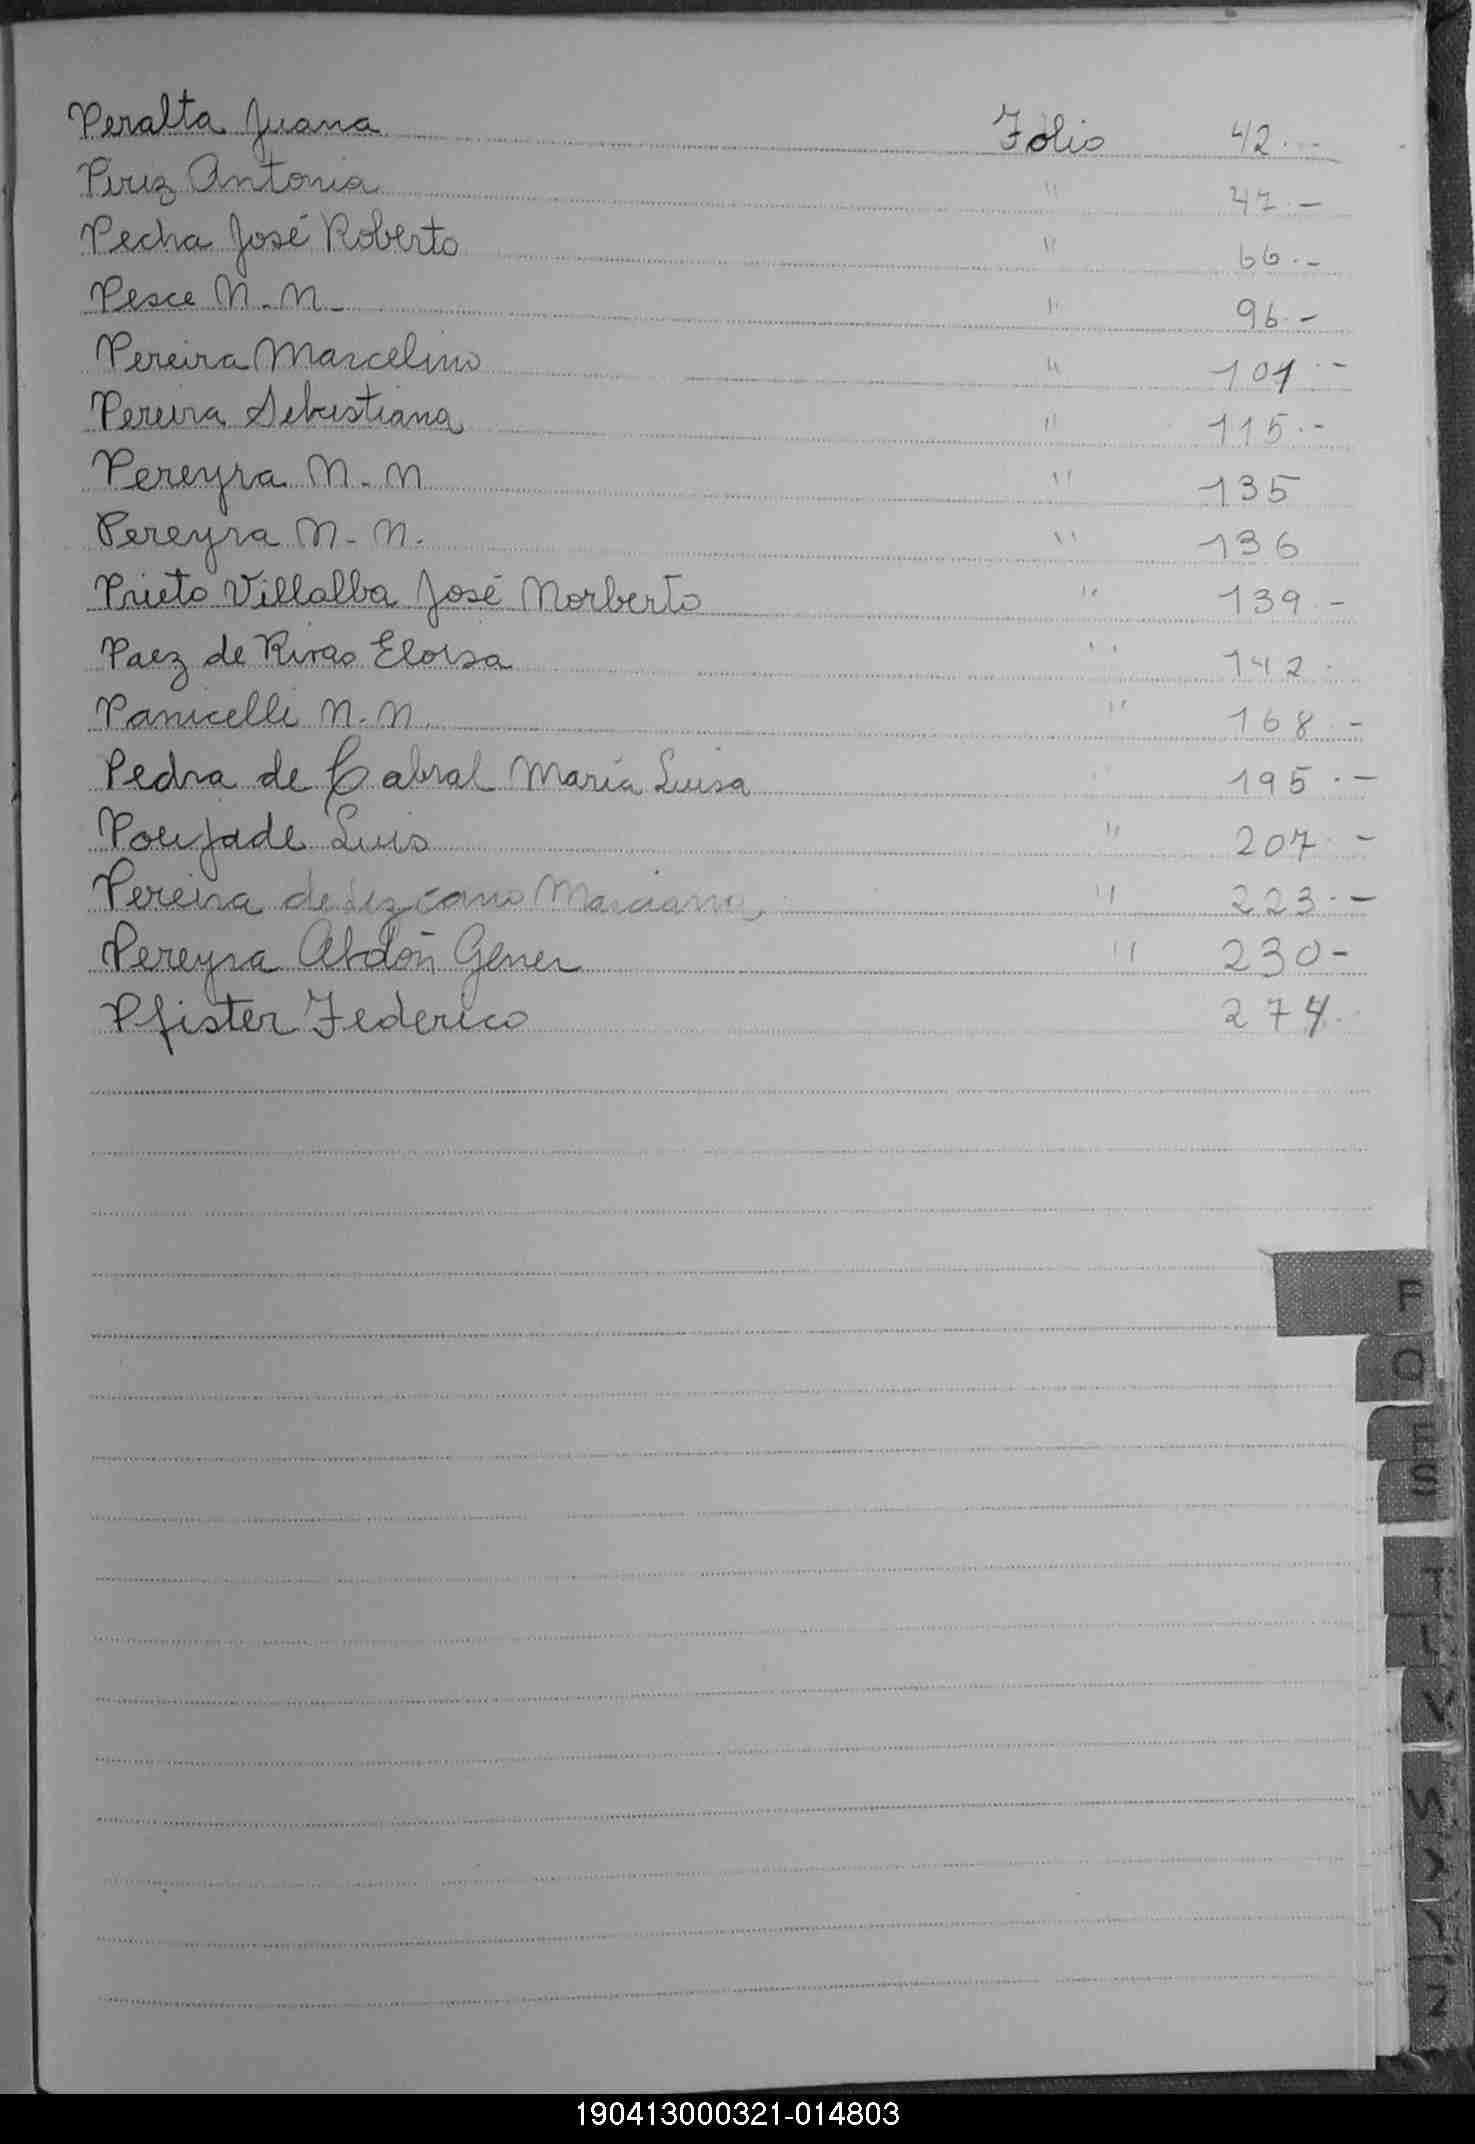 Peralta Juana Folio 42.-
Pirez Antonia " 47.-
Pecha José Roberto " 66.-
Pesce N.N.- " 96.-
Pereira Marcelino " 101.-
Pereira Sebastiana " 115.-
Pereyra N.N " 135
Pereyra N-N. " 136
Prieto Villalba José Norberto " 139.-
Paez de Rivas Eloisa " 142.
Panicelli N.N. " 168.-
Pedra de Cabral María Luisa " 195.-
Poujade Luis " 207.-
Pereira de Lezcano Marciana " 223.-
Pereyra Abdón Gener " 230-
Pfister Federico 274.
P
Q
R
S
T
V
X
Z
190413000321-014803